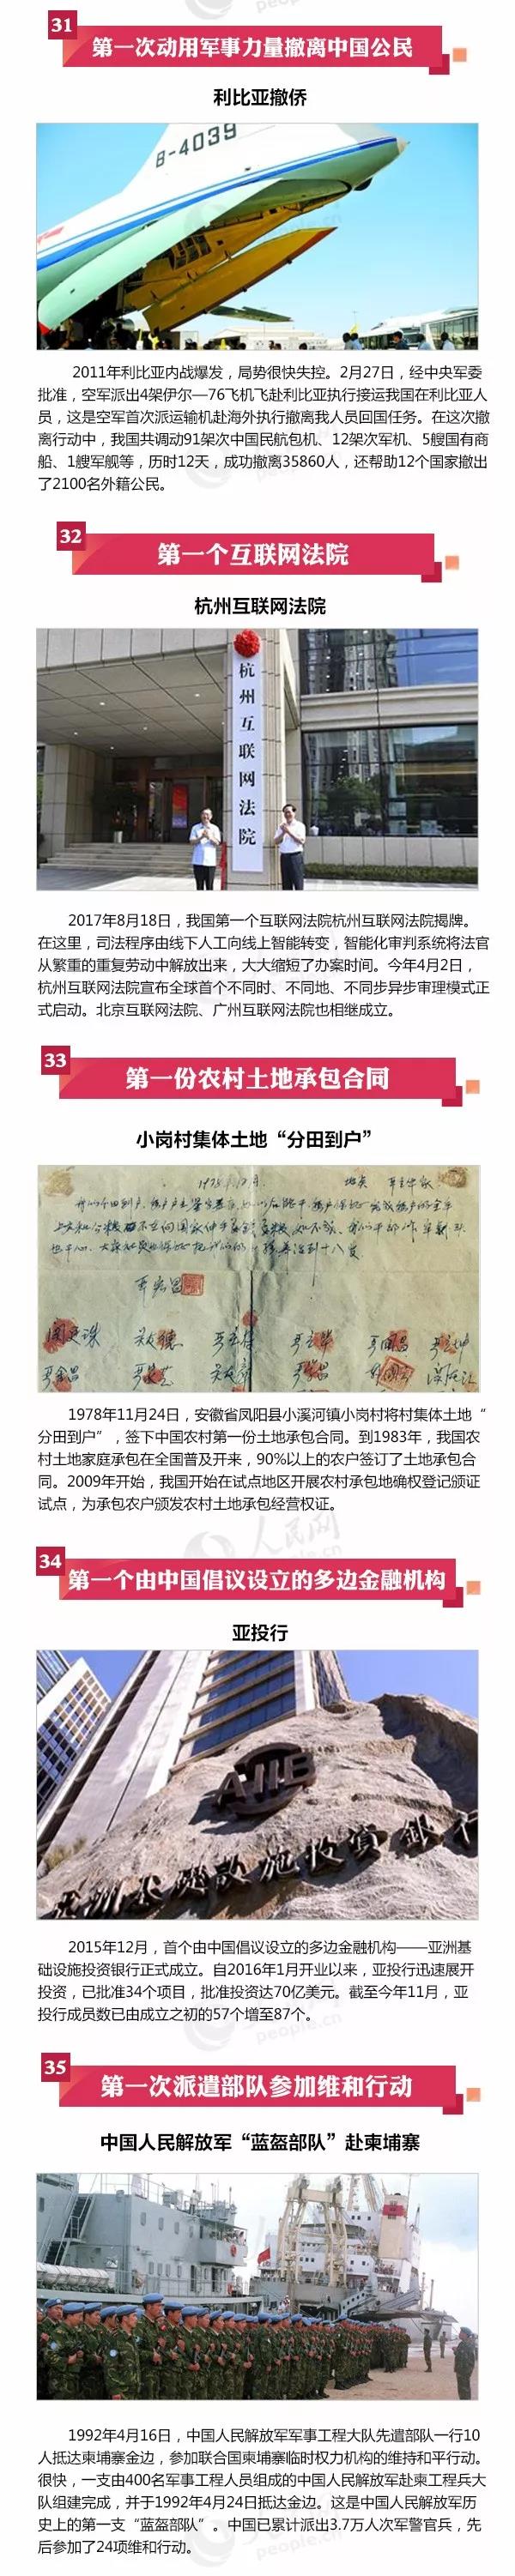 31
第一次动用军事力量撤离中国公民
利比亚撤侨
B-4039
people.cn
2011年利比亚内战爆发，局势很快失控。2月27日，经中央军委
批准，空军派出4架伊尔—76飞机飞赴利比亚执行接运我国在利比亚人
员，这是空军首次派运输机赴海外执行撤离我人员回国任务。在这次撤
离行动中，我国共调动91架次中国民航包机、12架次军机、5艘国有商
船、1艘军舰等，历时12天，成功撤离35860人，还帮助12个国家撤出
了2100名外籍公民。
32
第一个互联网法院
杭州互联网法院
杭州互联网法院
2017年8月18日，我国第一个互联网法院杭州互联网法院揭牌。
在这里，司法程序由线下人工向线上智能转变，智能化审判系统将法官
从繁重的重复劳动中解放出来，大大缩短了办案时间。今年4月2日，
杭州互联网法院宣布全球首个不同时、不同地、不同步异步审理模式正
式启动。北京互联网法院、广州互联网法院也相继成立。
33
第一份农村土地承包合同
小岗村集体土地“分田到户”
1978年11月24日，安徽省凤阳县小溪河镇小岗村将村集体土地“
分田到户”，签下中国农村第一份土地承包合同。到1983年，我国农
村土地家庭承包在全国普及开来，90%以上的农户签订了土地承包合
同。2009年开始，我国开始在试点地区开展农村承包地确权登记颁证
试点，为承包农户颁发农村土地承包经营权证。
人民网
34
第一个由中国倡议设立的多边金融机构
亚投行
AIIB
2015年12月，首个由中国倡议设立的多边金融机构——亚洲基
础设施投资银行正式成立。自2016年1月开业以来，亚投行迅速展开
投资，已批准34个项目，批准投资达70亿美元。截至今年11月，亚
投行成员数已由成立之初的57个增至87个。
people.cn
35
第一次派遣部队参加维和行动
中国人民解放军“蓝盔部队”赴柬埔寨
1992年4月16日，中国人民解放军军事工程大队先遣部队一行10
人抵达柬埔寨金边，参加联合国柬埔寨临时权力机构的维持和平行动。
很快，一支由400名军事工程人员组成的中国人民解放军赴柬工程兵大
队组建完成，并于1992年4月24日抵达金边。这是中国人民解放军历
史上的第一支“蓝盔部队”。中国已累计派出3.7万人次军警官兵，先
后参加了24项维和行动。